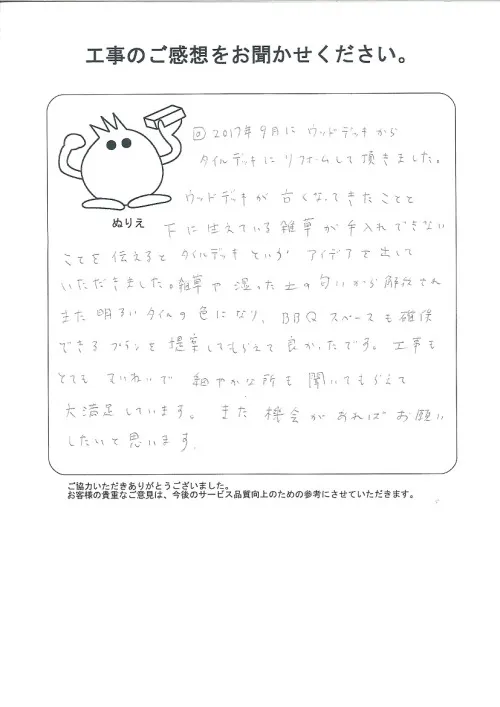 工事のご感想をお聞かせください。
回 2017年9月に ウッドデッキから
タイルデッキに リフォームして頂きました。
ウッドデッキが 古くなってきたことと
ぬりえ
下に生えている雑草が手入れできない
ことを伝えると タイルデッキというアイデアを出して
いただきました。雑草や湿った土の匂いから解放され
また明るいタイルの色になり、BBQスペースも確保
できるプランを提案してもらえて良かったです。工事も
とても ていねいで 細やかな所も聞いてもらえて
大満足しています。また機会があればお願い
したいと思います。
ご協力いただきありがとうございました。
お客様の貴重なご意見は、今後のサービス品質向上のための参考にさせていただきます。